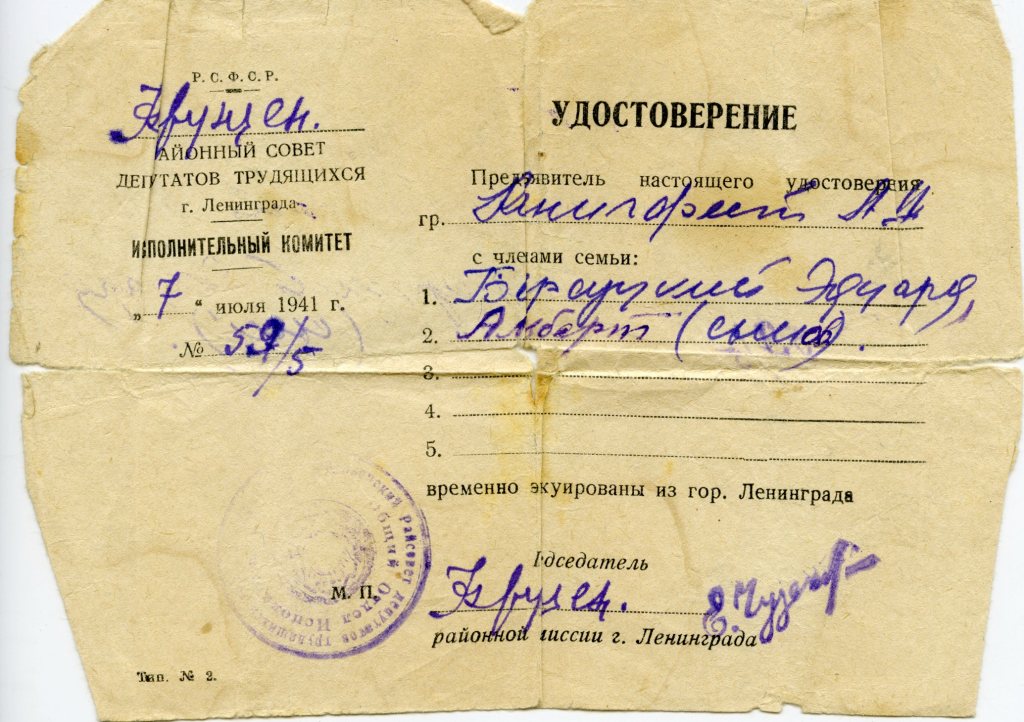 Р. С. Ф. С. Р.
Фрунзен.
АЙОННЫЙ СОВЕТ
ДЕПУТАТОВ ТРУДЯЩИХСЯ
г. Ленинграда
ИСПОЛНИТЕЛЬНЫЙ КОМИТЕТ
„ 7 “ июля 1941 г.
№ 59/5
УДОСТОВЕРЕНИЕ
Предъявитель настоящего удостоверия
гр.
с члеами семьи:
1. Эдуард,
2. Альберт (сыновья).
3.
4.
5.
временно экуированы из гор. Ленинграда
едседатель
Фрунзен.
районной иссии г. Ленинграда
М. П.
райсовет депутатов трудящихся
Общий Отдел Исполкома
Тип. № 2.